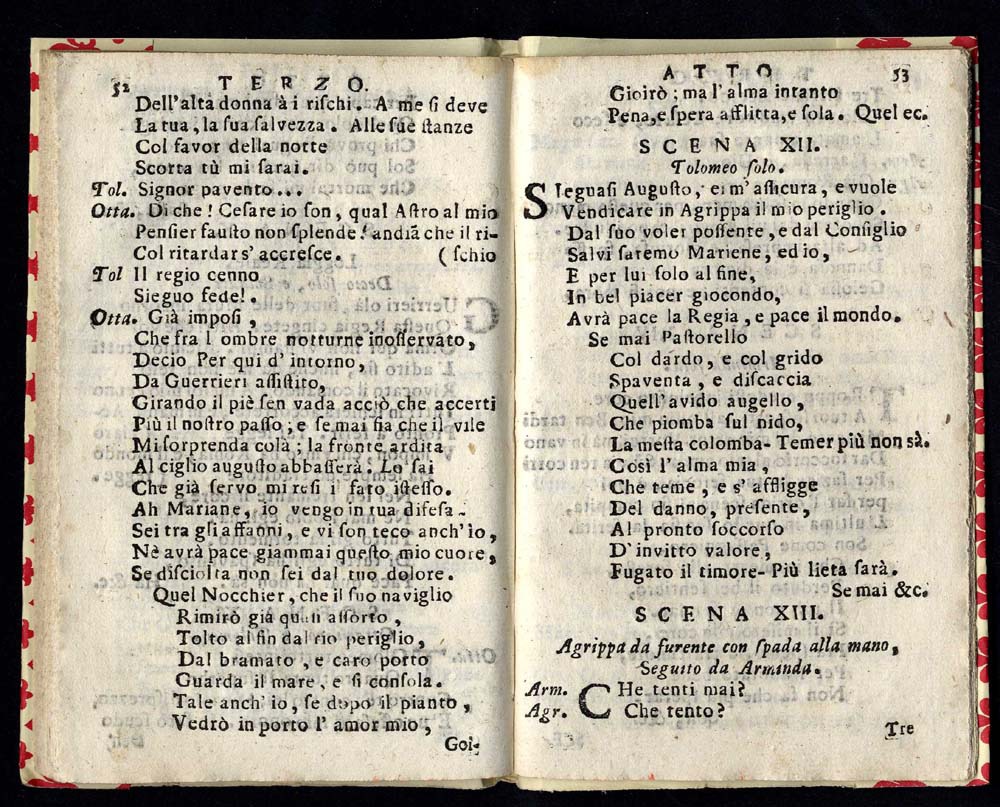 52 TERZO.
Dell'alta donna à i rischi. A me si deve
La tua, la sua salvezza. Alle sue stanze
Col favor della notte
Scorta tù mi sarai.
Tol. Signor pavento...
Otta. Di che! Cesare io son, qual Astro al mio
Pensier fausto non splende! andiã che il ri-
Col ritardar s' accresce. (schio
Tol Il regio cenno
Sieguo fede!.
Otta. Già imposi,
Che fra l'ombre notturne inosservato,
Decio Per qui d' intorno,
Da Guerrieri assistito,
Girando il piè sen vada acciò che accerti
Più il nostro passo; e se mai fia che il vile
Mi sorprenda colà; la fronte ardita
Al ciglio augusto abbasserà: Lo sai
Che già servo mi resi il fato istesso.
Ah Mariane, io vengo in tua difesa-
Sei tra gli affanni, e vi son teco anch'io,
Nè avrà pace giammai questo mio cuore,
Se disciolta non sei dal tuo dolore.
Quel Nocchier, che il suo naviglio
Rimirò già quasi assorto,
Tolto al fin dal rio periglio,
Dal bramato, e caro porto
Guarda il mare, e si consola.
Tale anch' io, se dopo il pianto,
Vedrò in porto l' amor mio,
Goi-
ATTO 53
Gioirò; ma l'alma intanto
Pena, e spera afflitta, e sola. Quel ec.
SCENA XII.
Tolomeo solo.
SIeguasi Augusto, ei m' assicura, e vuole
Vendicare in Agrippa il mio periglio.
Dal suo voler possente, e dal Consiglio
Salvi saremo Mariene, ed io,
E per lui solo al fine,
In bel piacer giocondo,
Avrà pace la Regia, e pace il mondo.
Se mai Pastorello
Col dardo, e col grido
Spaventa, e discaccia
Quell'avido augello,
Che piomba sul nido,
La mesta colomba- Temer più non sà.
Così l'alma mia,
Che teme, e s' affligge
Del danno, presente,
Al pronto soccorso
D'invitto valore,
Fugato il timore- Più lieta sarà.
Se mai &c.
SCENA XIII.
Agrippa da furente con spada alla mano,
Seguito da Arminda.
Arm. CHe tenti mai?
Agr. Che tento?
Tre